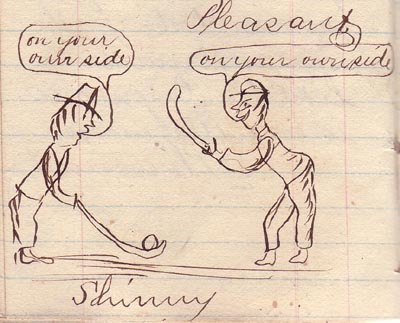 Pleasant
on your
own side
on your own side
Shinny